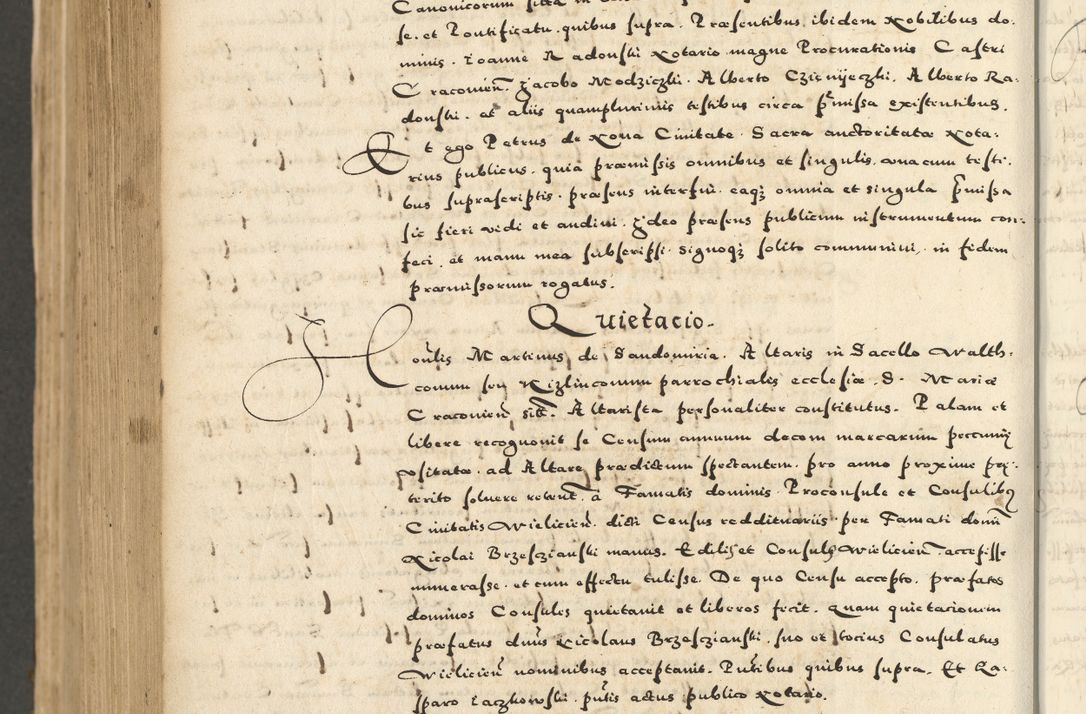 Canonicorum sitta in
se. et Pontificatu. quibus supra. Præsentibus ibidem Nobilibus do-
minis. Ioanne Radonski Notario magne Procurationis Castri
Cracovień. Jacobo Modziczki. Alberto Czienijeczki. Alberto Ra-
donski. et aliis quamplurimis testibus circa p̃missa existentibus.
Et ego Petrus de Nova Civitate Sacra auctoritate Nota-
rius publicus. quia præmissis omnibus et singulis. unacum testi-
bus suprascriptis. præsens interfui. eaqȝ omnia et singula p̃missa
sic fieri vidi et audivi. Ideo præsens publicum instrumentum con-
feci. et manu mea subscripsi. signoqȝ solito communivi, in fidem
præmissorum rogatus.
Quietacio.
Hoñlis Martinus de Sandomiria. Altaris in Sacello Walth-
conum seu Kizlinconum parrochialis ecclesiæ. S. Mariæ
Cracovień sitt̃. Altarista personaliter constitutus. Palam et
libere recognovit se Censum annuum decem marcarum peccuniȩ
usitatæ. ad Altare prædictum spectantem. pro anno proxime prȩ-
terito soluere retent̃. à Famatis dominis. Proconsule et Consulibȝ
Civitatis Wielicień. dicti Census reddituariis. per Famati domĩ
Nicolai Brzesczianski manus. Edilis et Consulis Wielicień. accepisse
numerasse. et cum effectu tulisse. De quo Censu accepto. præfatos
dominos Consules quietavit et liberos fecit. quam quietacionem
præfatus dnũs Nicolaus Brzesczianski. suo et tocius Consulatus
Wielicień nominibus acceptavit. Pñtibus quibus supra. Et Ga-
sparo Laczkowski. pñtis actus publico Notario.